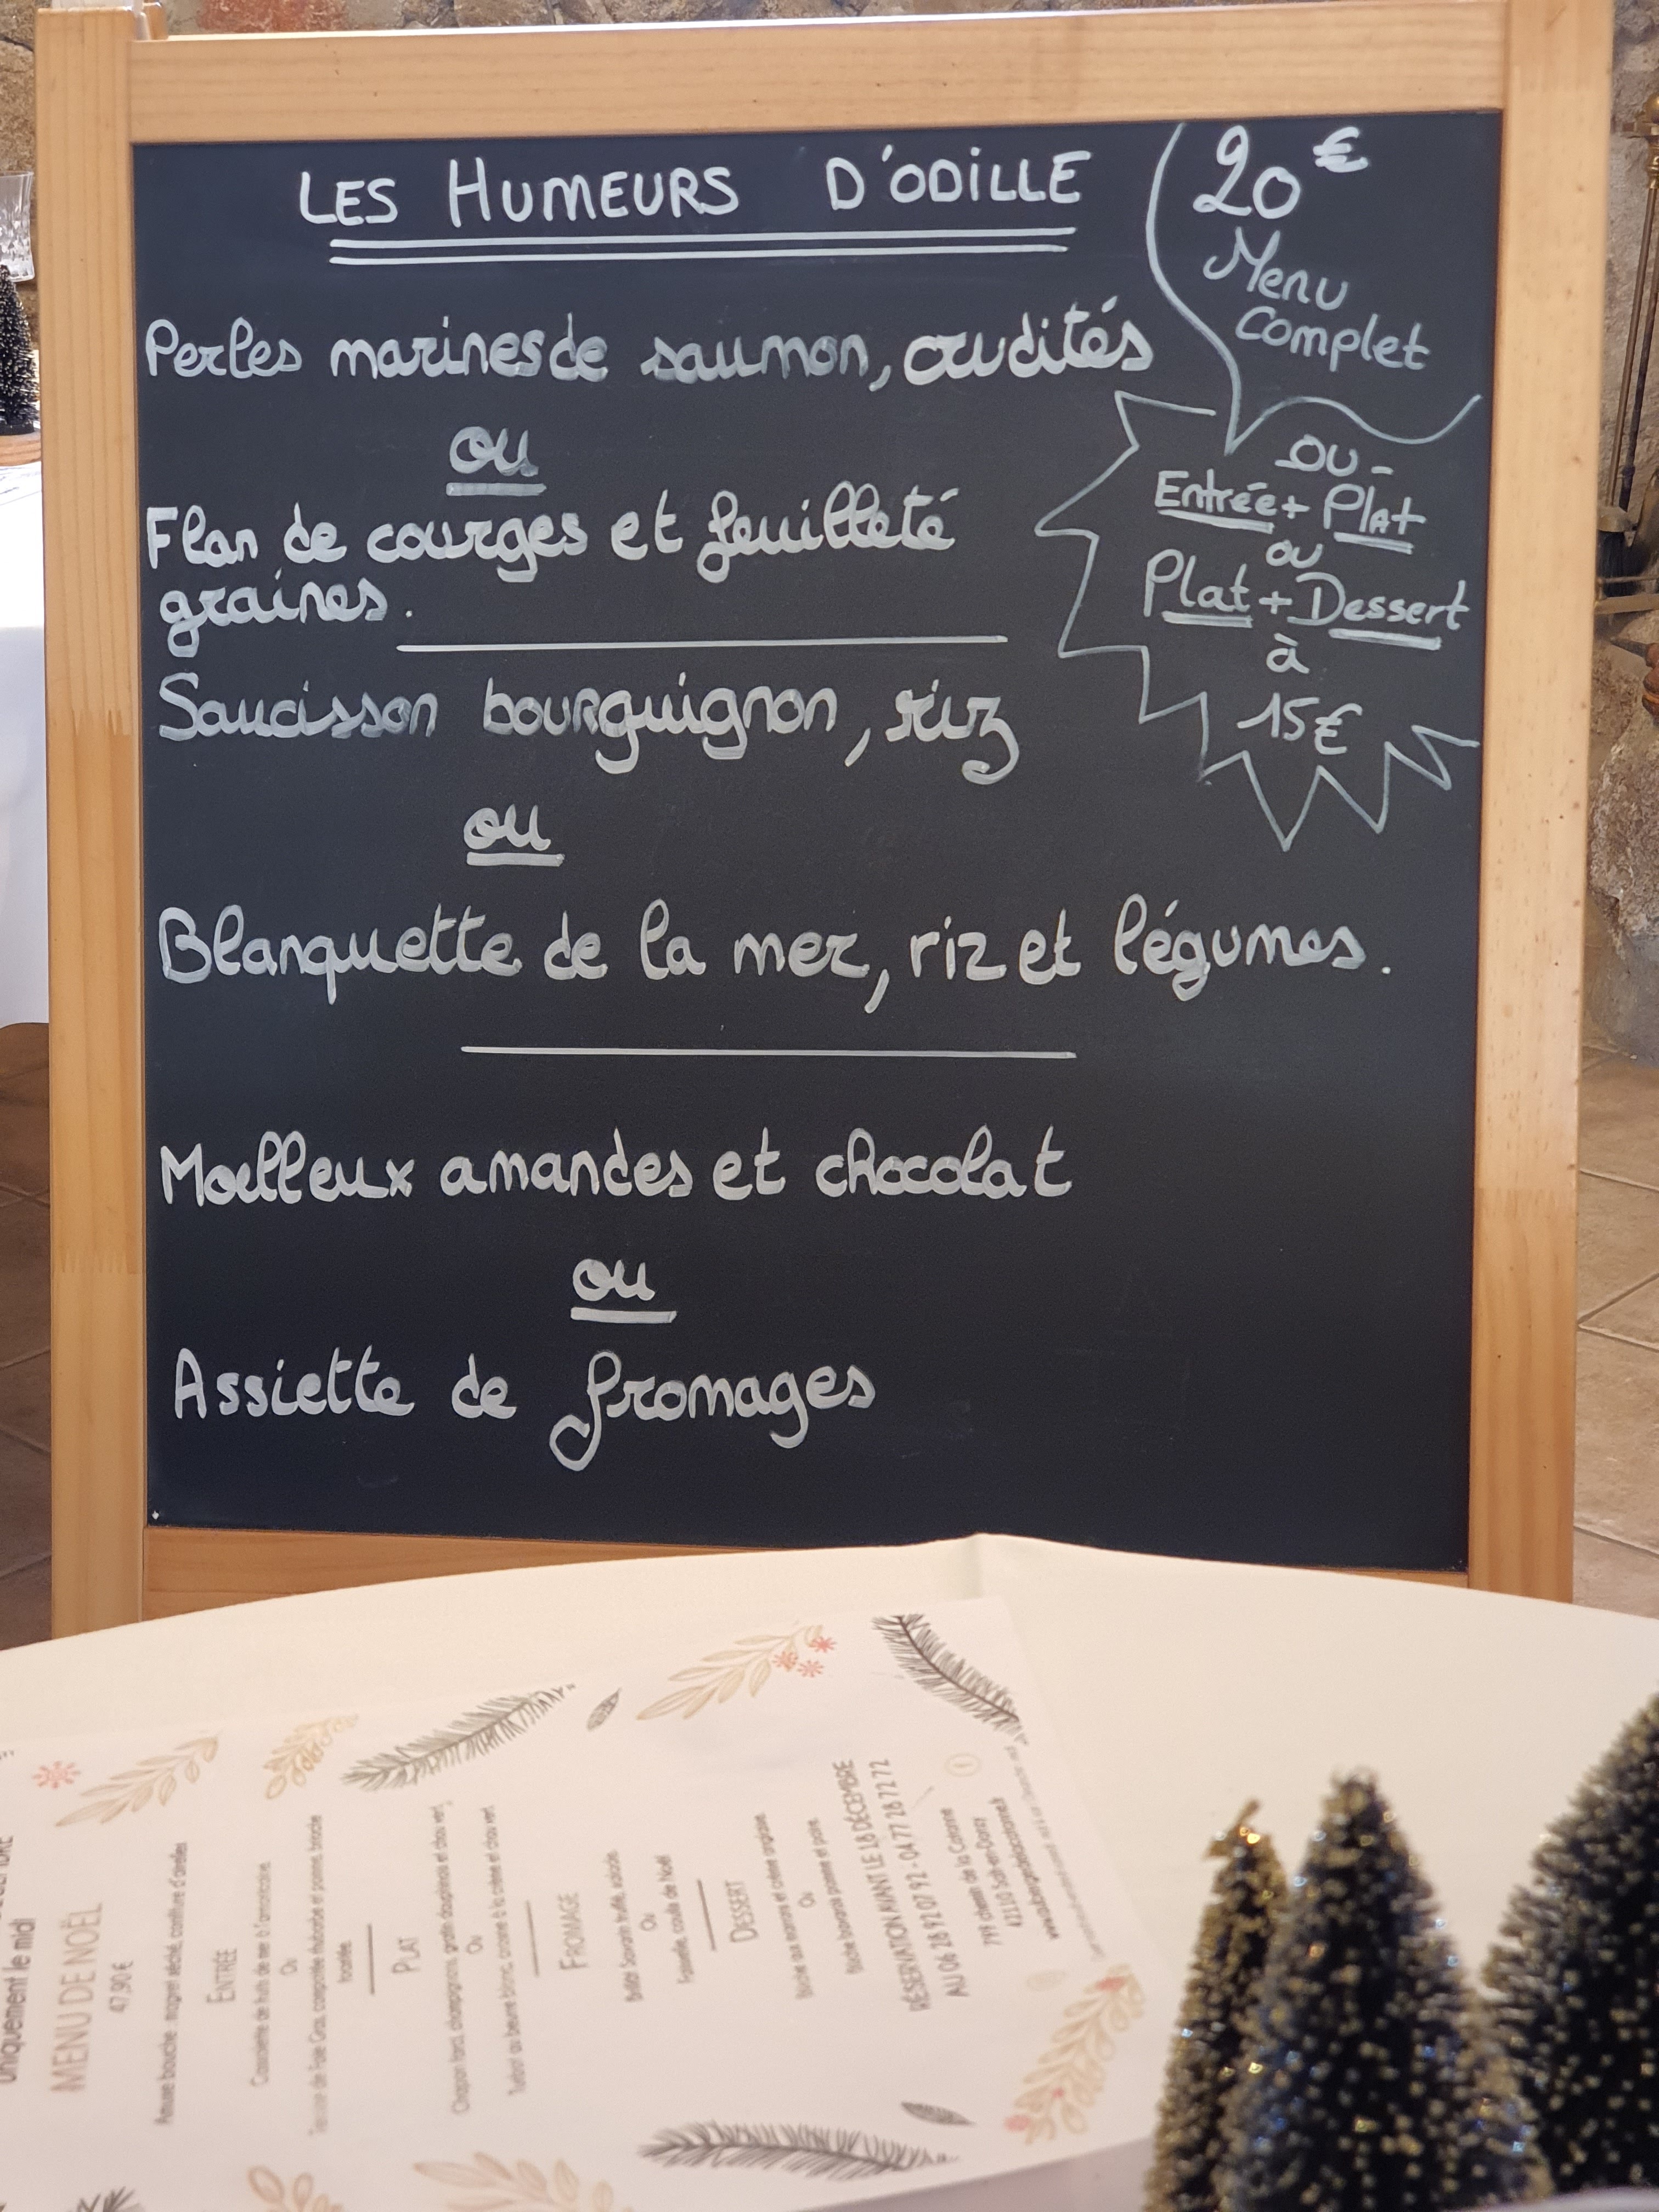 LES HUMEURS D'ODILLE
20€
Menu
complet
Perles marines de saumon, crudités
ou
Flan de courges et feuilleté
graines.
OU-
Entrée + Plat
ou
Plat + Dessert
à
15€
Saucisson bourguignon, riz
ou
Blanquette de la mer, riz et légumes.
Moelleux amandes et chocolat
ou
Assiette de fromages
uniquement le midi
MENU DE NOËL
47,90 €
Amuse bouche: magret séché, confiture d'airelles
ENTRÉE
Cassolette de fruits de mer à l'armoricaine
Ou
Terrine de Foie Gras, compotée rhubarbe et pomme, brioche
toastée
PLAT
Chapon farci, champignons, gratin dauphinois et chou vert
Ou
Turbot au beurre blanc, crosne à la crème et chou vert
FROMAGE
Brillat Savarin truffé, salade
Ou
Faisselle, coulis de Noël
DESSERT
Bûche aux marrons et crème anglaise
Ou
Bûche banana pomme et poire
RÉSERVATION AVANT LE 18 DÉCEMBRE
AU 06 28 92 07 92 - 04 77 28 72 72
799 chemin de la Coronne
42110 Salt-en-Donzy